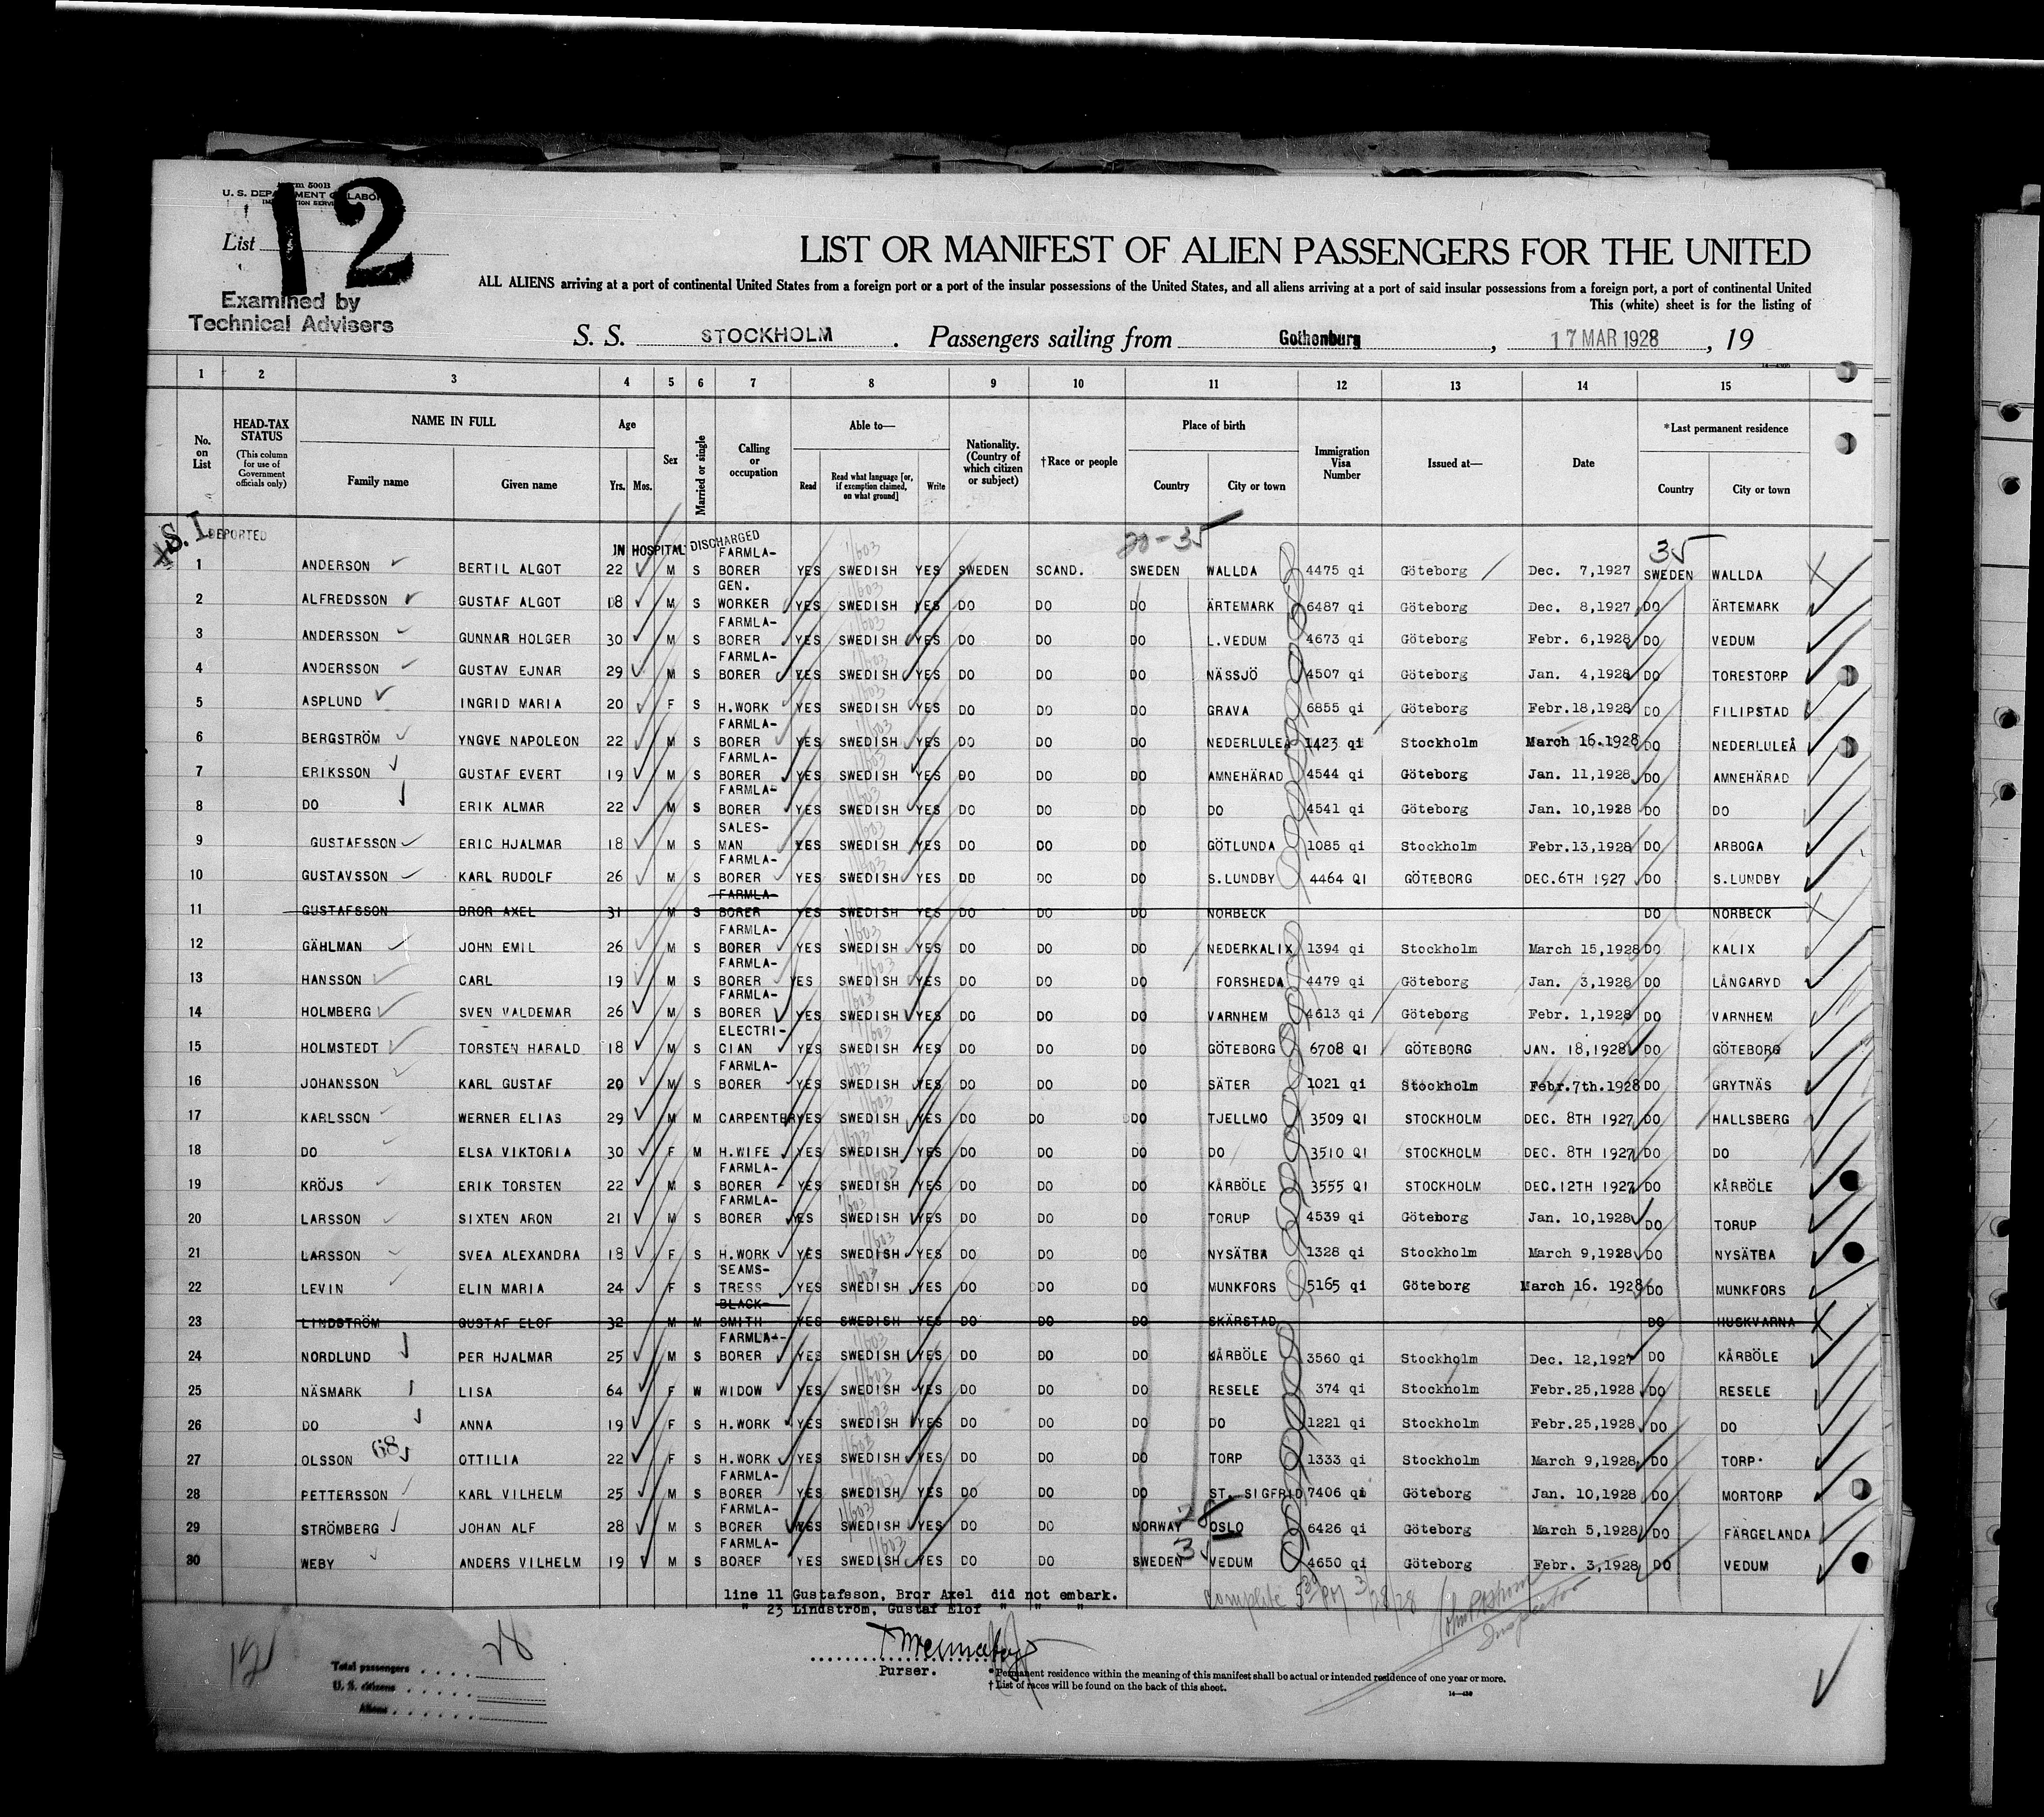 Form 500B
U. S. DEPARTMENT OF LABOR
IMMIGRATION SERVICE
List 12
Examined by
Technical Advisers
LIST OR MANIFEST OF ALIEN PASSENGERS FOR THE UNITED
ALL ALIENS arriving at a port of continental United States from a foreign port or a port of the insular possessions of the United States, and all aliens arriving at a port of said insular possessions from a foreign port, a port of continental United
This (white) sheet is for the listing of
S. S. STOCKHOLM . Passengers sailing from Gothenburg , 17 MAR 1928 , 19
1 2 3 4 5 6 7 8 9 10 11 12 13 14 15
No. on List
HEAD-TAX STATUS (This column for use of Government officials only)
NAME IN FULL Family name Given name
Age Yrs. Mos.
Sex
Married or single
Calling or occupation
Able to— Read Read what language [or, if exemption claimed, on what ground] Write
Nationality. (Country of which citizen or subject)
†Race or people
Place of birth Country City or town
Immigration Visa Number
Issued at—
Date
*Last permanent residence Country City or town
X S.I. DEPORTED IN HOSPITAL DISCHARGED 20-35 35
1 ANDERSON BERTIL ALGOT 22 M S FARMLA-BORER YES SWEDISH YES SWEDEN SCAND. SWEDEN WALLDA 4475 qi Göteborg Dec. 7,1927 SWEDEN WALLDA
2 ALFREDSSON GUSTAF ALGOT 18 M S GEN. WORKER YES SWEDISH YES DO DO DO ÄRTEMARK 6487 qi Göteborg Dec. 8,1927 DO ÄRTEMARK
3 ANDERSSON GUNNAR HOLGER 30 M S FARMLA-BORER YES SWEDISH YES DO DO DO L.VEDUM 4673 qi Göteborg Febr. 6,1928 DO VEDUM
4 ANDERSSON GUSTAV EJNAR 29 M S FARMLA-BORER YES SWEDISH YES DO DO DO NÄSSJÖ 4507 qi Göteborg Jan. 4,1928 DO TORESTORP
5 ASPLUND INGRID MARIA 20 F S H.WORK YES SWEDISH YES DO DO DO GRAVA 6855 qi Göteborg Febr.18,1928 DO FILIPSTAD
6 BERGSTRÖM YNGVE NAPOLEON 22 M S FARMLA-BORER YES SWEDISH YES DO DO DO NEDERLULEÅ 1423 qi Stockholm March 16.1928 DO NEDERLULEÅ
7 ERIKSSON GUSTAF EVERT 19 M S FARMLA-BORER YES SWEDISH YES DO DO DO AMNEHÄRAD 4544 qi Göteborg Jan. 11,1928 DO AMNEHÄRAD
8 DO ERIK ALMAR 22 M S FARMLA-BORER YES SWEDISH YES DO DO DO DO 4541 qi Göteborg Jan. 10,1928 DO DO
9 GUSTAFSSON ERIC HJALMAR 18 M S SALES-MAN YES SWEDISH YES DO DO DO GÖTLUNDA 1085 qi Stockholm Febr.13,1928 DO ARBOGA
10 GUSTAVSSON KARL RUDOLF 26 M S FARMLA-BORER YES SWEDISH YES DO DO DO S.LUNDBY 4464 QI GÖTEBORG DEC.6TH 1927 DO S.LUNDBY
11 GUSTAFSSON BROR AXEL 31 M S FARMLA-BORER YES SWEDISH YES DO DO DO NORBECK DO NORBECK
12 GÄHLMAN JOHN EMIL 26 M S FARMLA-BORER YES SWEDISH YES DO DO DO NEDERKALIX 1394 qi Stockholm March 15,1928 DO KALIX
13 HANSSON CARL 19 M S FARMLA-BORER YES SWEDISH YES DO DO DO FORSHEDA 4479 qi Göteborg Jan. 3,1928 DO LÅNGARYD
14 HOLMBERG SVEN VALDEMAR 26 M S FARMLA-BORER YES SWEDISH YES DO DO DO VARNHEM 4613 qi Göteborg Febr. 1,1928 DO VARNHEM
15 HOLMSTEDT TORSTEN HARALD 18 M S ELECTRI-CIAN YES SWEDISH YES DO DO DO GÖTEBORG 6708 QI GÖTEBORG JAN. 18,1928 DO GÖTEBORG
16 JOHANSSON KARL GUSTAF 20 M S FARMLA-BORER YES SWEDISH YES DO DO DO SÄTER 1021 qi Stockholm Febr.7th.1928 DO GRYTNÄS
17 KARLSSON WERNER ELIAS 29 M M CARPENTER YES SWEDISH YES DO DO DO TJELLMO 3509 QI STOCKHOLM DEC. 8TH 1927 DO HALLSBERG
18 DO ELSA VIKTORIA 30 F M H.WIFE YES SWEDISH YES DO DO DO DO 3510 QI STOCKHOLM DEC. 8TH 1927 DO DO
19 KRÖJS ERIK TORSTEN 22 M S FARMLA-BORER YES SWEDISH YES DO DO DO KÅRBÖLE 3555 QI STOCKHOLM DEC.12TH 1927 DO KÅRBÖLE
20 LARSSON SIXTEN ARON 21 M S FARMLA-BORER YES SWEDISH YES DO DO DO TORUP 4539 qi Göteborg Jan. 10,1928 DO TORUP
21 LARSSON SVEA ALEXANDRA 18 F S H.WORK YES SWEDISH YES DO DO DO NYSÄTRA 1328 qi Stockholm March 9,1928 DO NYSÄTRA
22 LEVIN ELIN MARIA 24 F S SEAMS-TRESS YES SWEDISH YES DO DO DO MUNKFORS 5165 qi Göteborg March 16. 1928 DO MUNKFORS
23 LINDSTRÖM GUSTAF ELOF 32 M M BLACK-SMITH YES SWEDISH YES DO DO DO SKÄRSTAD DO HUSKVARNA
24 NORDLUND PER HJALMAR 25 M S FARMLA-BORER YES SWEDISH YES DO DO DO KÅRBÖLE 3560 qi Stockholm Dec. 12,1927 DO KÅRBÖLE
25 NÄSMARK LISA 64 F W WIDOW YES SWEDISH YES DO DO DO RESELE 374 qi Stockholm Febr.25,1928 DO RESELE
26 DO ANNA 19 F S H.WORK YES SWEDISH YES DO DO DO DO 1221 qi Stockholm Febr.25,1928 DO DO
27 OLSSON 68 OTTILIA 22 F S H.WORK YES SWEDISH YES DO DO DO TORP 1333 qi Stockholm March 9,1928 DO TORP.
28 PETTERSSON KARL VILHELM 25 M S FARMLA-BORER YES SWEDISH YES DO DO DO ST. SIGFRID 7406 qi Göteborg Jan. 10,1928 DO MORTORP
29 STRÖMBERG JOHAN ALF 28 M S FARMLA-BORER YES SWEDISH YES DO DO NORWAY 28 OSLO 6426 qi Göteborg March 5,1928 DO FÄRGELANDA
30 WEBY ANDERS VILHELM 19 M S FARMLA-BORER YES SWEDISH YES DO DO SWEDEN 35 VEDUM 4650 qi Göteborg Febr. 3,1928 DO VEDUM
line 11 Gustafsson, Bror Axel did not embark.
" 23 Lindström, Gustaf Elof " " "
Complete 5:30 PM 3/28/28
Inspector
12
Total passengers . . . . 28
U. S. citizens . . . . .
Aliens . . . . . .
Purser.
*Permanent residence within the meaning of this manifest shall be actual or intended residence of one year or more.
† List of races will be found on the back of this sheet.